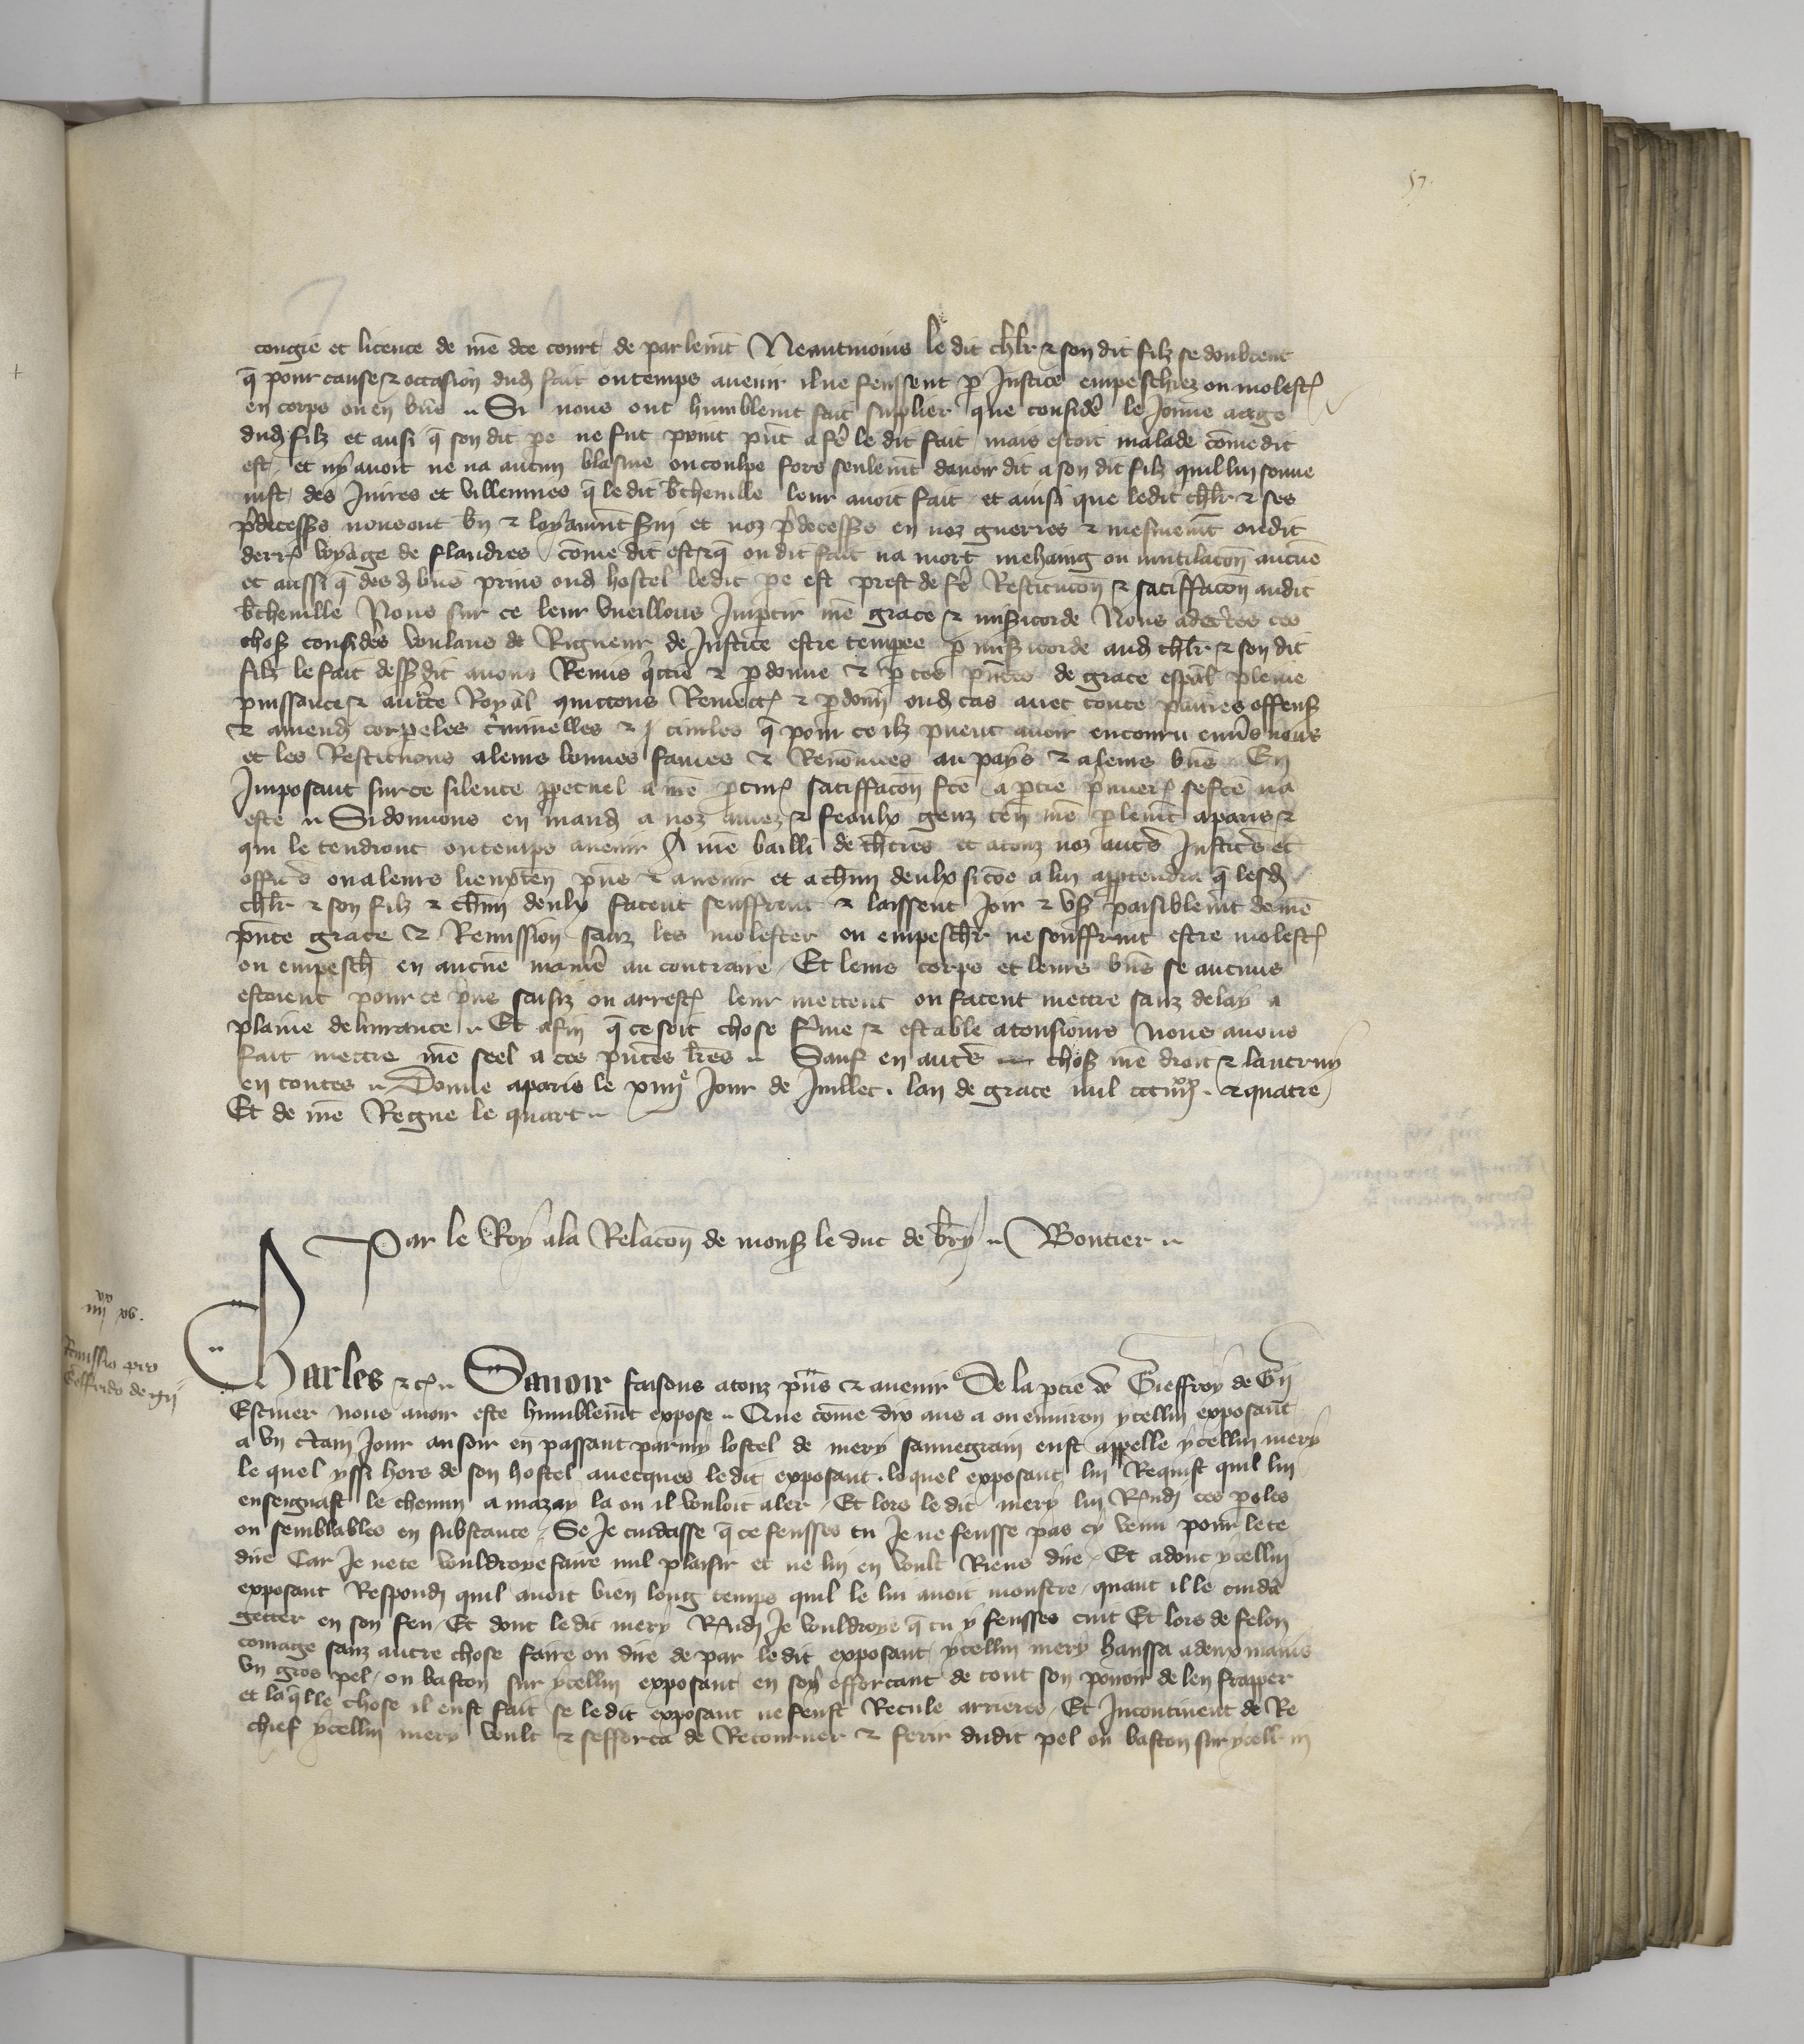 57.
congie et licence de nr̄e dc̄e court de parlemt̄ Neantmoins le dit chl̄r & son dit filz se doubtent
q̄ pour cause & occasion dud fait ou temps avenir il ne feussent p̄ Justice empeschiez ou molest
en corps ou en biēs .. Si nous ont humblemt̄ fait supplier que considē le Jeune aage
dud filz et ausi q̄ son dit pe ne fut point pn̄t a fē le dit fait mais estoit malade cōme dit
est et ny avoit ne na aucun blasme ou coulpe fors seulemt̄ davoir dit a son dit filz quil lui souve
nist des Iniures et villennies q̄ le dit b̄thenille leur avoit fait et ainsi que ledit chl̄r & ses
p̄decess̄s nous ont bn̄ & loyaumt̄ s̄vi et noz p̄decess̄s en noz guerres & mesmemt̄ ou dit
derr̄ voyage de flandres cōme dit est & q̄ ou dit fait na mort mehaing ou mutilacōn aucuē
et aussi q̄ des d biēs prins oud hostel ledit pe est prest de fē Restitucōn & satiffacōn audit
b̄thenille Nous sur ce leur vueillons Imp̄tir nr̄e grace & mis̄icorde Nous adec̄tes ces
chos̄ considēs voulans de Rigueur de Justice estre tempee p̄ mis̄icorde aud chl̄r & son dit
filz le fait dess̄dit avons Remis q̄ttie & p̄donne & p̄ ces pn̄tes de grace esp̄al pleine
puissance & auct̄te Royal quittons Remett & p̄donn oud cas avec toute painnes offens̄
& amend corpeles c̄minelles & civiles q̄ pour ce ilz peuent avoir encouru env̄s nous
et les Restituons a leurs bonnes fames & Renōmees au pays & a leurs biēs En
Imposant sur ce silence p̄petuel a nr̄e p̄cur̄ satiffacōn fc̄e a p̄tie p̄mier̄ se fc̄e na
este .. Si donnons en mand a noz amez & feaulx genz ten nr̄e p̄lemt̄ a paris &
qui le tendront ou temps avenir A nr̄e bailli de ch̄tres et a touz noz aut̄s Justic̄s et
offic̄s ou a leurs lieuxten pn̄s & avenir et a ch̄un deulx si cōe a lui app̄tendra q̄ lesd
chl̄r & son filz & ch̄un deulx facent seuffrent & laissent Joir & us̄ paisiblemt̄ de nr̄e
pn̄te grace & Remission sanz les molester ou empeschr̄ ne souffrent estre molest
ou empesch̄ en aucūe maniē au contraire Et leurs corps et leurs biēs se aucuns
estoient pour ce p̄ns saisiz ou arrest leur mettent ou facent mettre sanz delay a
plaine delivrance .. Et afin q̄ ce soit chose f̄me & estable a tousiours Nous avons
fait mettre nr̄e seel a ces pn̄tes lr̄es .. Sauf en aut̄s chos̄ nr̄e droit & lautruy
en toutes .. Donne a paris le xiiiie Jour de Juillet . lan de grace mil ccc iiiixx . & quatre
Et de nr̄e Regne le quart ..
Par le Roy a la Relacōn de mons̄ le duc de b̄ry .. Bontier ..
iiiixx xv.
Remissio pro
Geffrido de gii
Charles &c̄ .. Savoir faisons a touz pn̄s & avenir De la p̄tie de Gieffroy de Gii
Escuier nous avoir este humblemt̄ expose .. Que cōme dix ans a ou environ ycellui exposant
a un c̄tain Jour au soir en passant parmy lostel de mery sannegrain eust appelle ycellui mery
le quel yssi hors de son hostel avecques ledit exposant . lequel exposant lui Requist quil lui
enseignast le chemin a mazay la ou il vouloit aler Et lors le dit mery lui R̄ndi ces p̄oles
ou semblables en substance Se Je cuidasse q̄ ce feusses tu Je ne feusse pas cy venu pour le te
dire Car Je ne te vouldroye faire nul plaisir et ne lui en voult Riens dire Et adonc ycellui
exposant Respondi quil avoit bien long temps quil le lui avoit monstre quant il le cuida
getter en son feu Et dont le dit mery R̄ndi Je vouldroye q̄ tu y feusses cuit Et lors de felon
courage sanz autre chose faire ou dire de par le dit exposant ycellui mery haussa a deux mains
un gros pel ou baston sur ycellui exposant en soy efforcant de tout son pouoir de len frapper
et laq̄lle chose il eust fait se le dit exposant ne feust Recule arrieres Et Incontinent de Re
chief ycellui mery voult & sefforca de Retourner & ferir dudit pel ou baston sur ycellui